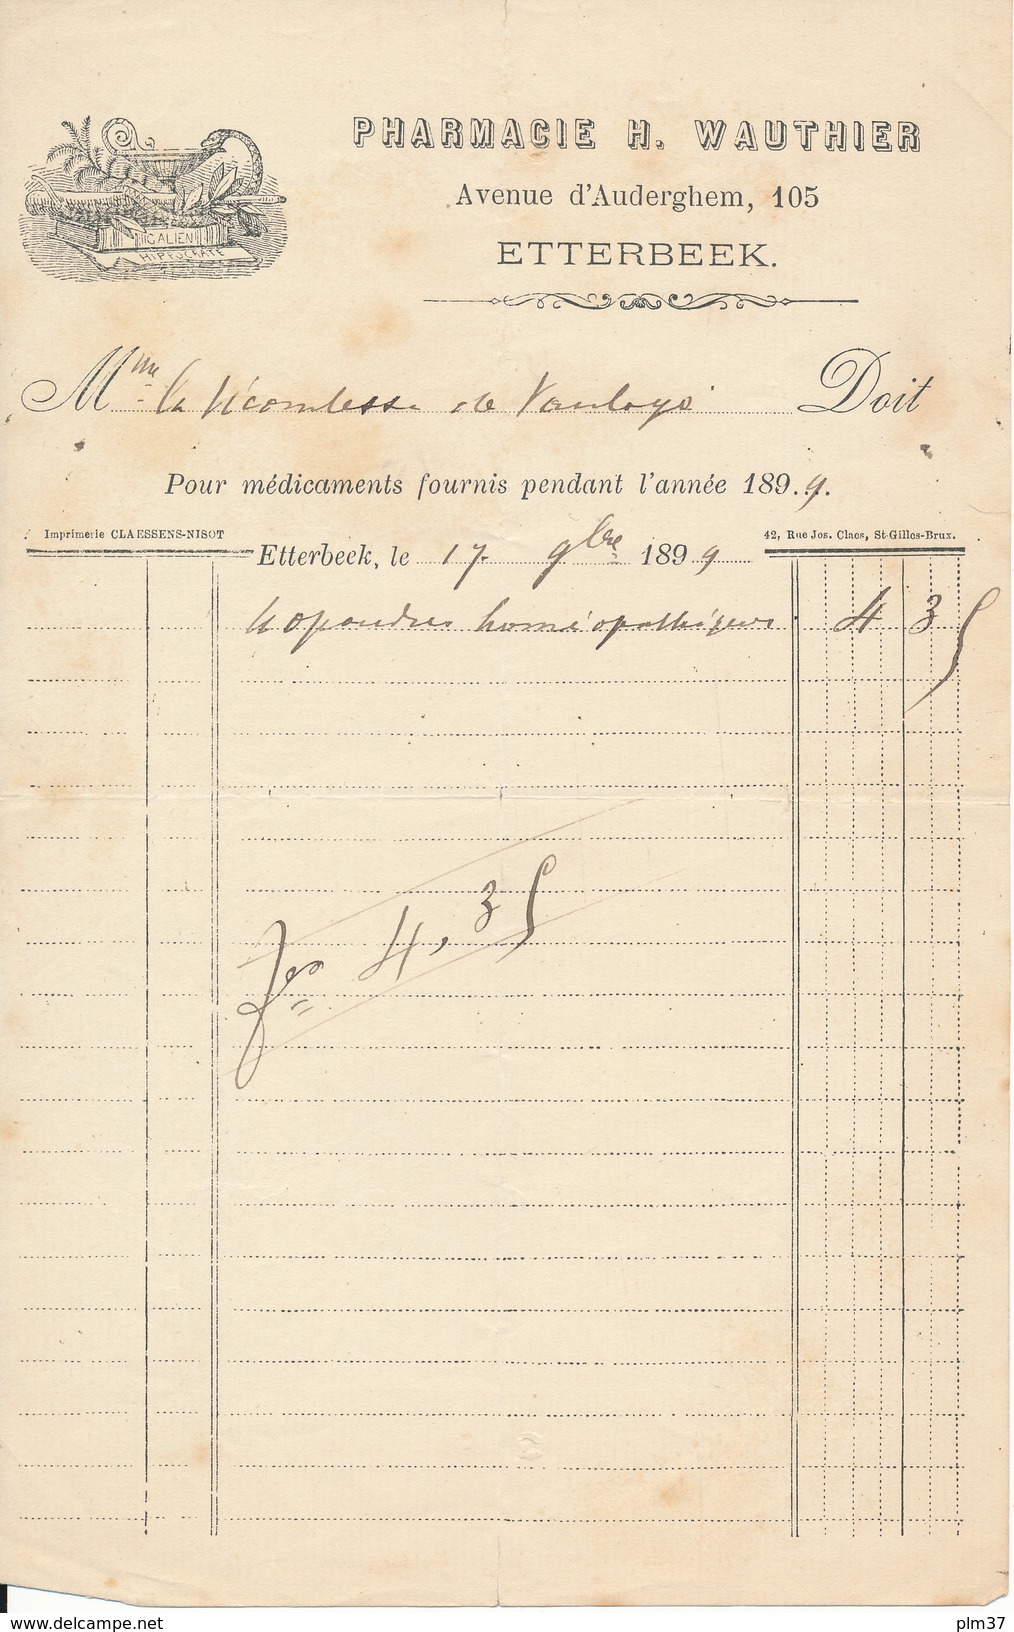 PHARMACIE H. WAUTHIER
Avenue d'Auderghem, 105
ETTERBEEK.
GALIEN
HIPPOCRATE
Mme la Vicomtesse de Vauloge Doit
Pour médicaments fournis pendant l'année 189.9.
Imprimerie CLAESSENS-NISOT
42, Rue Jos. Claes, St-Gilles-Brux.
Etterbeek, le 17 9bre 1899
40 poudres homéopathiques 4 35
frs 4,35
www.delcampe.net
plm37